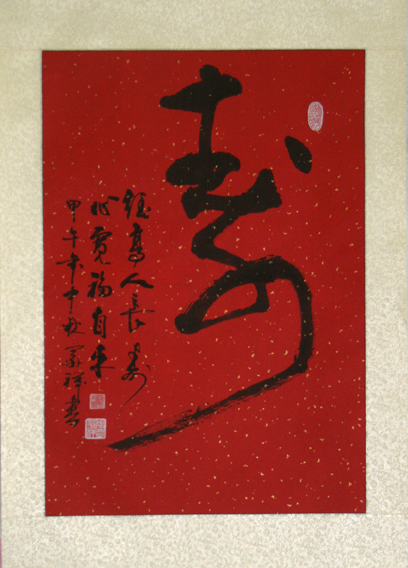 寿
德高人長寿
心寬福自来
甲午年中秋 祥書